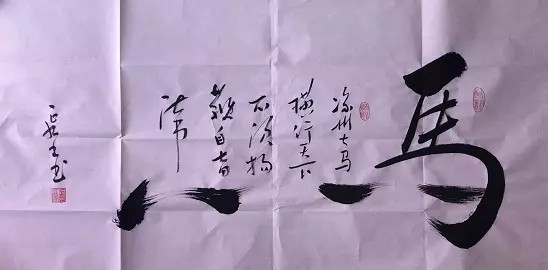 馬
凉州大马
横行天下
不须扬
鞭自奋
蹄
书